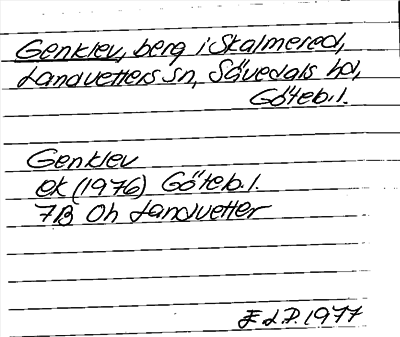 Genklev, berg i Skalmered,
Landvetters sn, Sävedals hd,
Göteb.l.
Genklev
ek (1976) Göteb.l.
7B Oh Landvetter
E.L.P. 1977